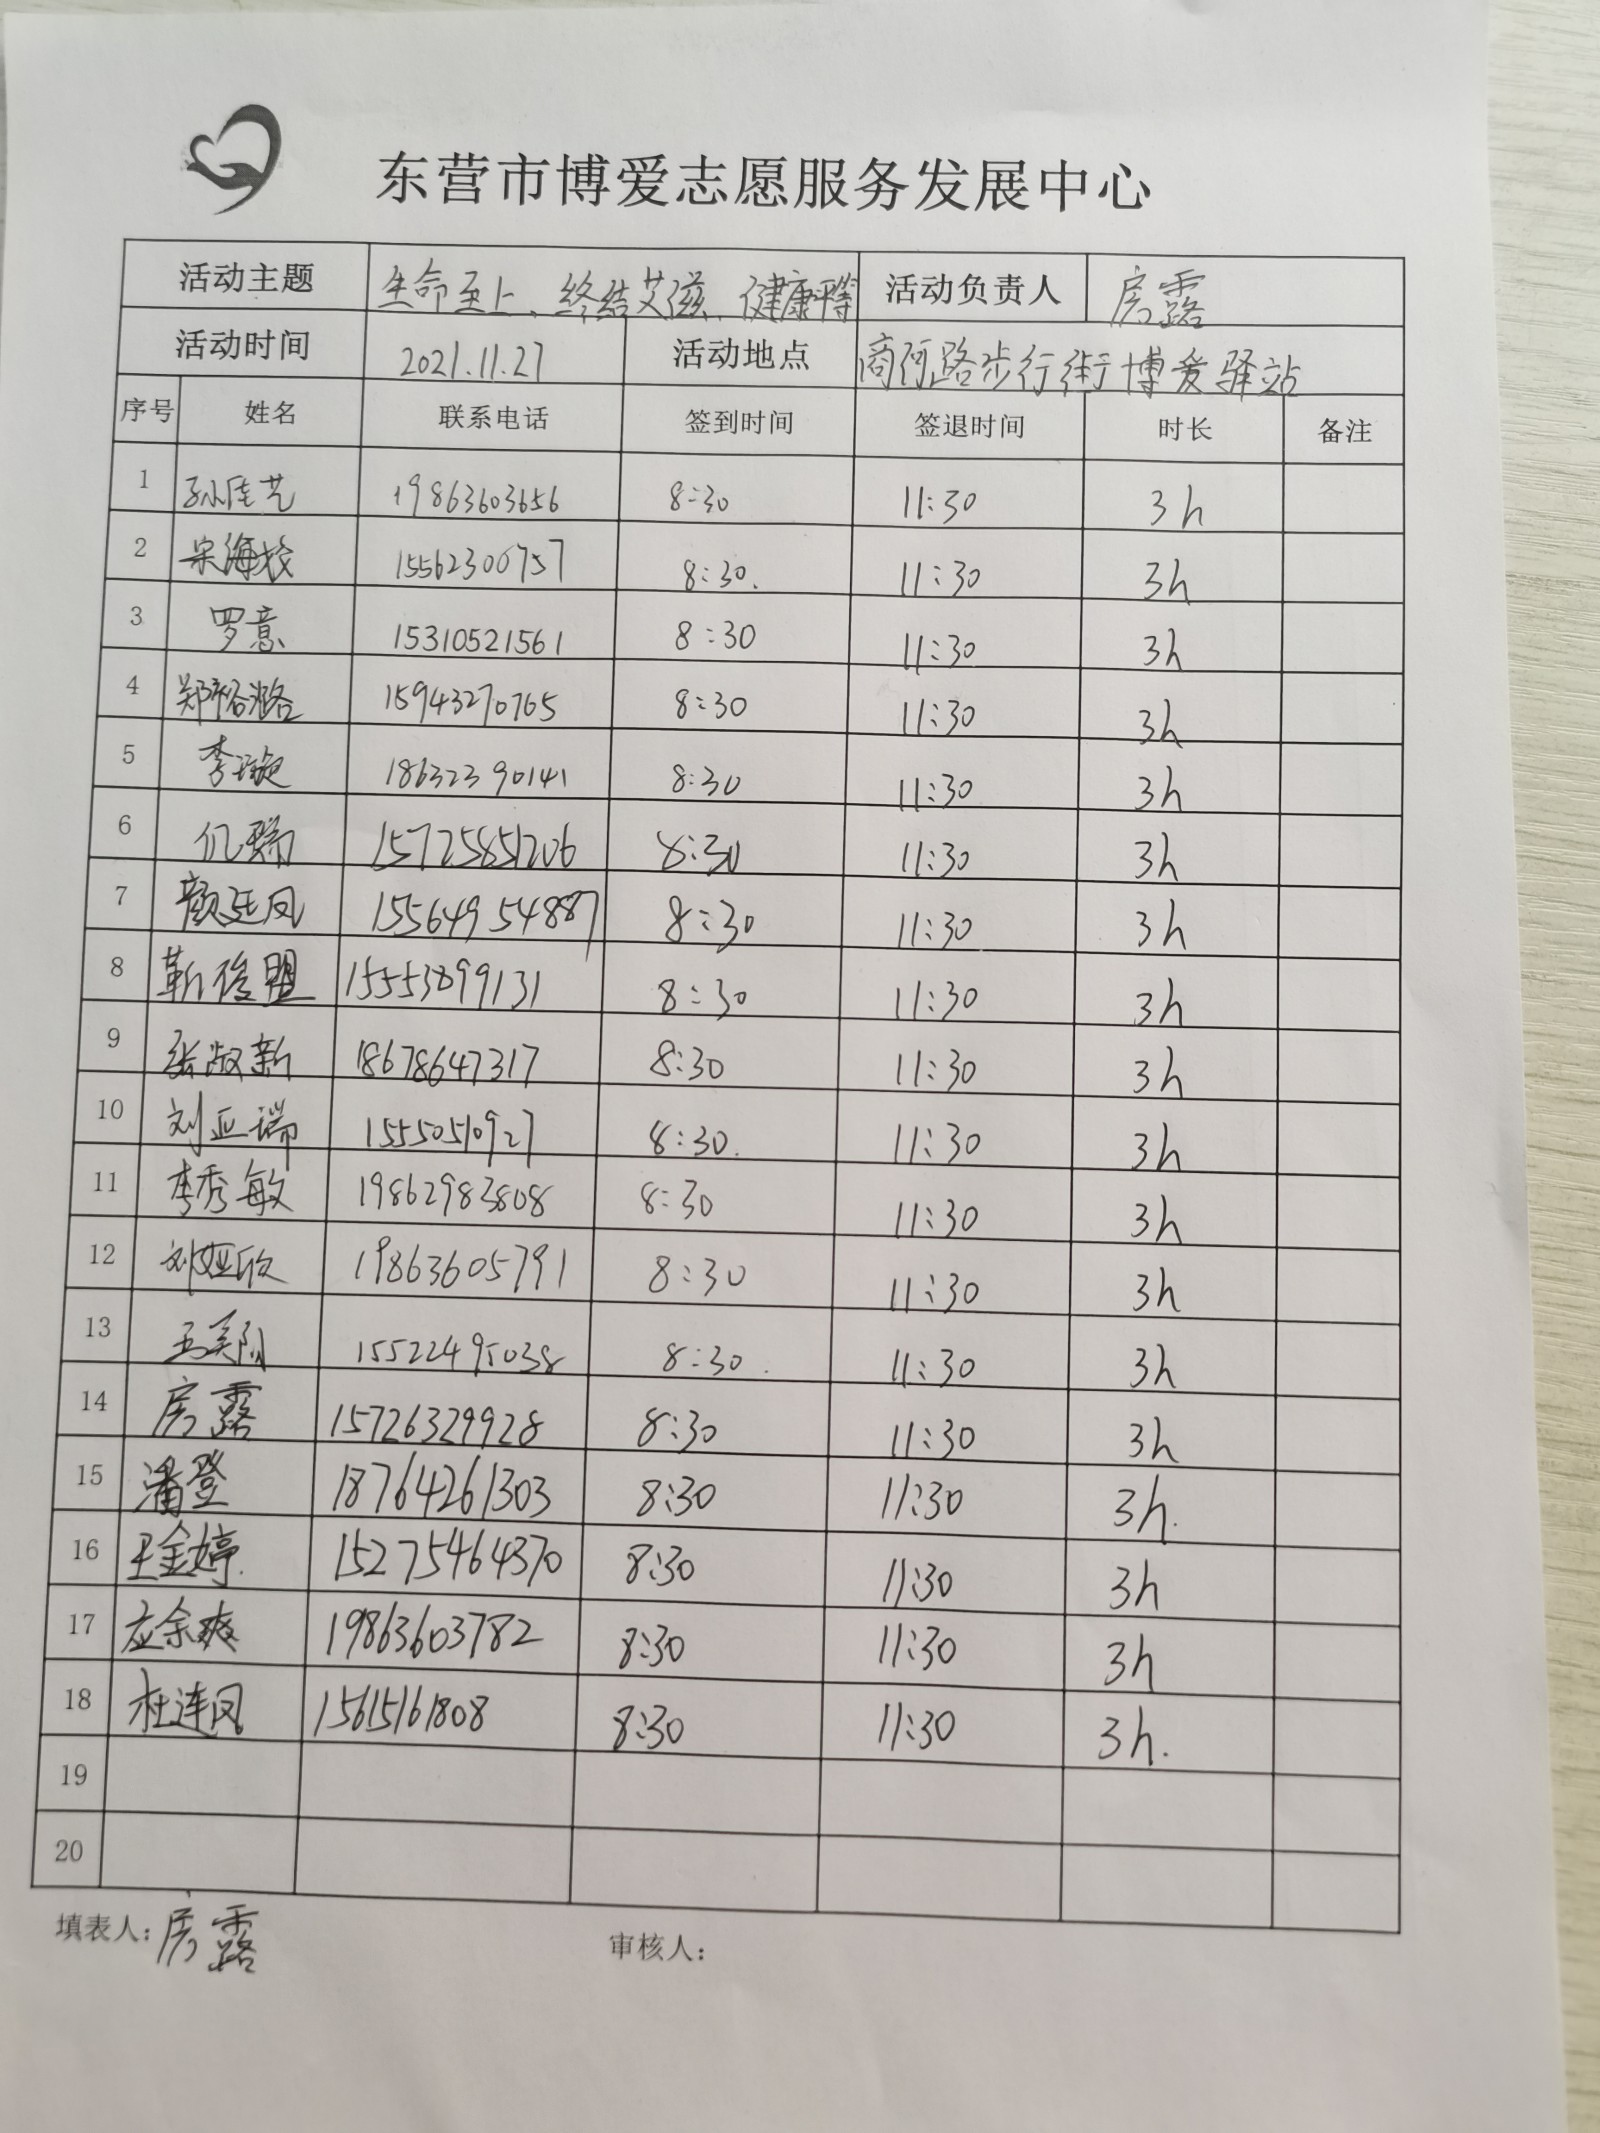 东营市博爱志愿服务发展中心
活动主题 生命至上、终结艾滋、健康平等 活动负责人 房露
活动时间 2021.11.27 活动地点 商河路步行街博爱驿站
序号 姓名 联系电话 签到时间 签退时间 时长 备注
1 孙佳艺 19863603656 8:30 11:30 3h
2 宋海姣 15562300757 8:30. 11:30 3h
3 罗意 15310521561 8:30 11:30 3h
4 郑裕潞 15943270765 8:30 11:30 3h
5 李璇 18632390141 8:30 11:30 3h
6 亿瑞 15725851206 8:30 11:30 3h
7 颜廷凤 15564954887 8:30 11:30 3h
8 靳俊盟 15553899131 8:30 11:30 3h
9 张淑新 18678647317 8:30 11:30 3h
10 刘亚瑞 15550510927 8:30. 11:30 3h
11 李秀敏 19862983808 8:30 11:30 3h
12 刘娅欣 19863605791 8:30 11:30 3h
13 15522495038 8:30. 11:30 3h
14 房露 15726329928 8:30 11:30 3h
15 潘登 18764261303 8:30 11:30 3h.
16 王金婷. 15275464370 8:30 11:30 3h
17 应余爽 19863603782 8:30 11:30 3h
18 杜连凤 15615161808 8:30 11:30 3h.
19
20
填表人：房露 审核人：